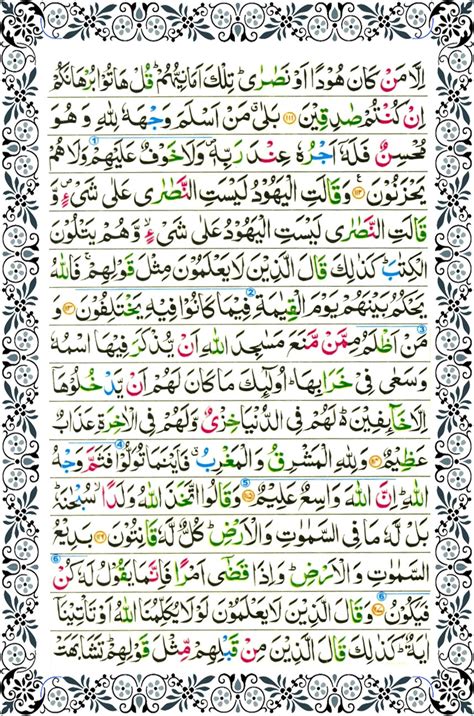 اِلَّا مَنْ كَانَ هُوْدًا اَوْ نَصٰرٰى ؕ تِلْكَ اَمَانِيُّهُمْ ؕ قُلْ هَاتُوْا بُرْهَانَكُمْ
اِنْ كُنْتُمْ صٰدِقِيْنَ ۱۱۱ بَلٰى ۗ مَنْ اَسْلَمَ وَجْهَهٗ لِلّٰهِ وَهُوَ
مُحْسِنٌ فَلَهٗۤ اَجْرُهٗ عِنْدَ رَبِّهٖ ۪ وَلَا خَوْفٌ عَلَيْهِمْ وَلَا هُمْ
يَحْزَنُوْنَ ۱۱۲ وَقَالَتِ الْيَهُوْدُ لَيْسَتِ النَّصٰرٰى عَلٰى شَىْءٍ ۪ وَّ
قَالَتِ النَّصٰرٰى لَيْسَتِ الْيَهُوْدُ عَلٰى شَىْءٍ ۙ وَّهُمْ يَتْلُوْنَ
الْكِتٰبَ ؕ كَذٰلِكَ قَالَ الَّذِيْنَ لَا يَعْلَمُوْنَ مِثْلَ قَوْلِهِمْ ۚ فَاللّٰهُ
يَحْكُمُ بَيْنَهُمْ يَوْمَ الْقِيٰمَةِ فِيْمَا كَانُوْا فِيْهِ يَخْتَلِفُوْنَ ۱۱۳ وَ
مَنْ اَظْلَمُ مِمَّنْ مَّنَعَ مَسٰجِدَ اللّٰهِ اَنْ يُّذْكَرَ فِيْهَا اسْمُهٗ
وَسَعٰى فِىْ خَرَابِهَا ؕ اُولٰٓئِكَ مَا كَانَ لَهُمْ اَنْ يَّدْخُلُوْهَاۤ
اِلَّا خَآئِفِيْنَ ؕ لَهُمْ فِى الدُّنْيَا خِزْىٌ وَّلَهُمْ فِى الْاٰخِرَةِ عَذَابٌ
عَظِيْمٌ ۱۱۴ وَلِلّٰهِ الْمَشْرِقُ وَالْمَغْرِبُ ۗ فَاَيْنَمَا تُوَلُّوْا فَثَمَّ وَجْهُ
اللّٰهِ ؕ اِنَّ اللّٰهَ وَاسِعٌ عَلِيْمٌ ۱۱۵ وَقَالُوا اتَّخَذَ اللّٰهُ وَلَدًا ۙ سُبْحٰنَهٗ ؕ
بَلْ لَّهٗ مَا فِى السَّمٰوٰتِ وَالْاَرْضِ ؕ كُلٌّ لَّهٗ قٰنِتُوْنَ ۱۱۶ بَدِيْعُ
السَّمٰوٰتِ وَالْاَرْضِ ؕ وَاِذَا قَضٰٓى اَمْرًا فَاِنَّمَا يَقُوْلُ لَهٗ كُنْ
فَيَكُوْنُ ۱۱۷ وَقَالَ الَّذِيْنَ لَا يَعْلَمُوْنَ لَوْلَا يُكَلِّمُنَا اللّٰهُ اَوْ تَاْتِيْنَاۤ
اٰيَةٌ ؕ كَذٰلِكَ قَالَ الَّذِيْنَ مِنْ قَبْلِهِمْ مِّثْلَ قَوْلِهِمْ ؕ تَشَابَهَتْ